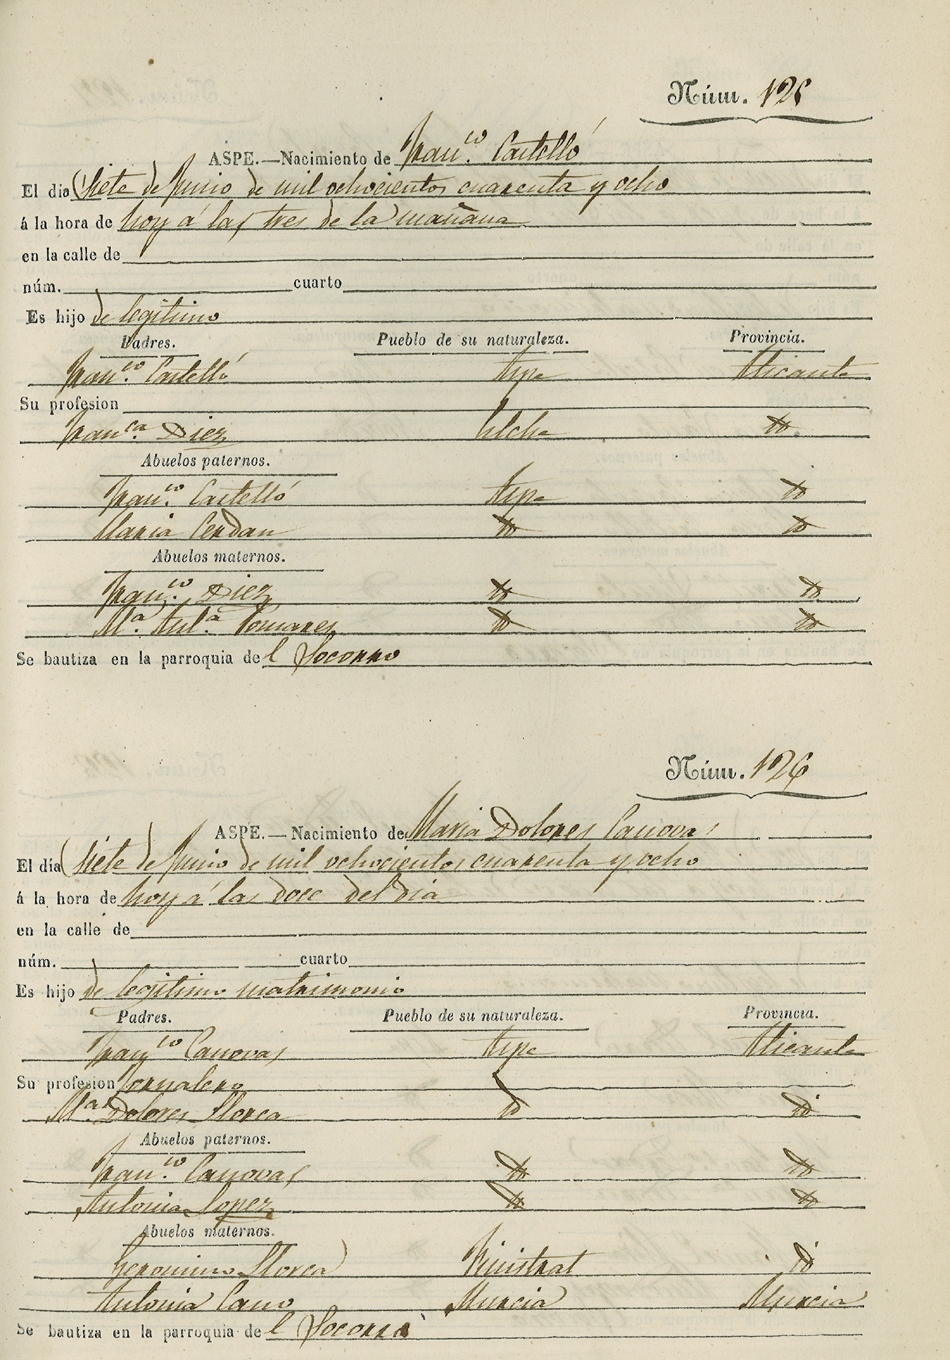 Núm. 125
ASPE.—Nacimiento de Fran.co Castelló
El dia Siete de Junio de mil ochocientos cuarenta y ocho
á la hora de hoy á las tres de la mañana
en la calle de
núm. cuarto
Es hijo de legitimo
Padres. Pueblo de su naturaleza. Provincia.
Fran.co Castelló Aspe Alicante
Su profesion
Fran.ca Diez Elche do.
Abuelos paternos.
Fran.co Castelló Aspe do
Maria Cerdan do do
Abuelos maternos.
Fran.co Diez do do
M.a Ant.a Pomares do do
Se bautiza en la parroquia del Socorro
Núm. 126
ASPE.—Nacimiento de Maria Dolores Canovas
El día Siete de Junio de mil ochocientos cuarenta y ocho
á la hora de hoy á las doce del dia
en la calle de
núm. cuarto
Es hijo de legitimo matrimonio
Padres. Pueblo de su naturaleza. Provincia.
Fran.co Canovas Aspe Alicante
Su profesion Jornalero
M.a Dolores Llorca do do
Abuelos paternos.
Fran.co Canovas do do
Antonia Lopez do do
Abuelos maternos.
Geronimo Llorca Finistrat do
Antonia Cano Murcia Murcia
Se bautiza en la parroquia del Socorro